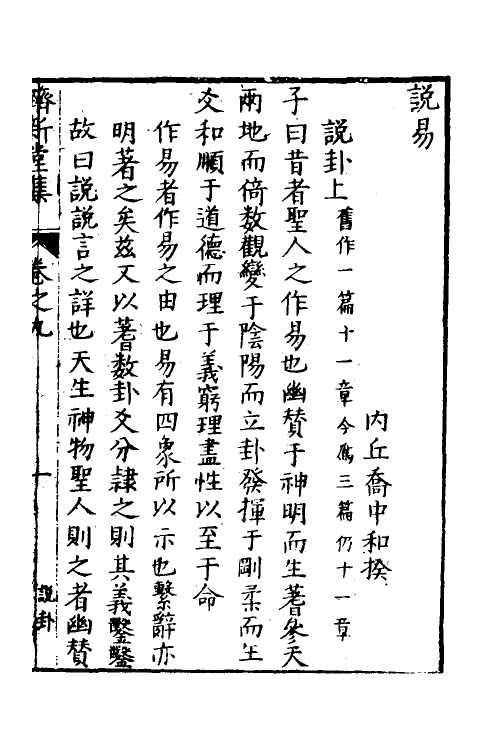 説易
内丘喬中和撰
説卦上 舊作一篇十一章今爲三篇仍十一章
子曰昔者聖人之作易也幽賛于神明而生蓍參天
兩地而倚數觀變于陰陽而立卦發揮于剛柔而生
爻和順于道德而理于義窮理盡性以至于命
作易者作易之由也易有四象所以示也繫辭亦
明著之矣兹又以蓍數卦爻分隷之則其義鑿鑿
故曰説説言之詳也天生神物聖人則之者幽賛
躋新堂集 卷之九 一 説卦